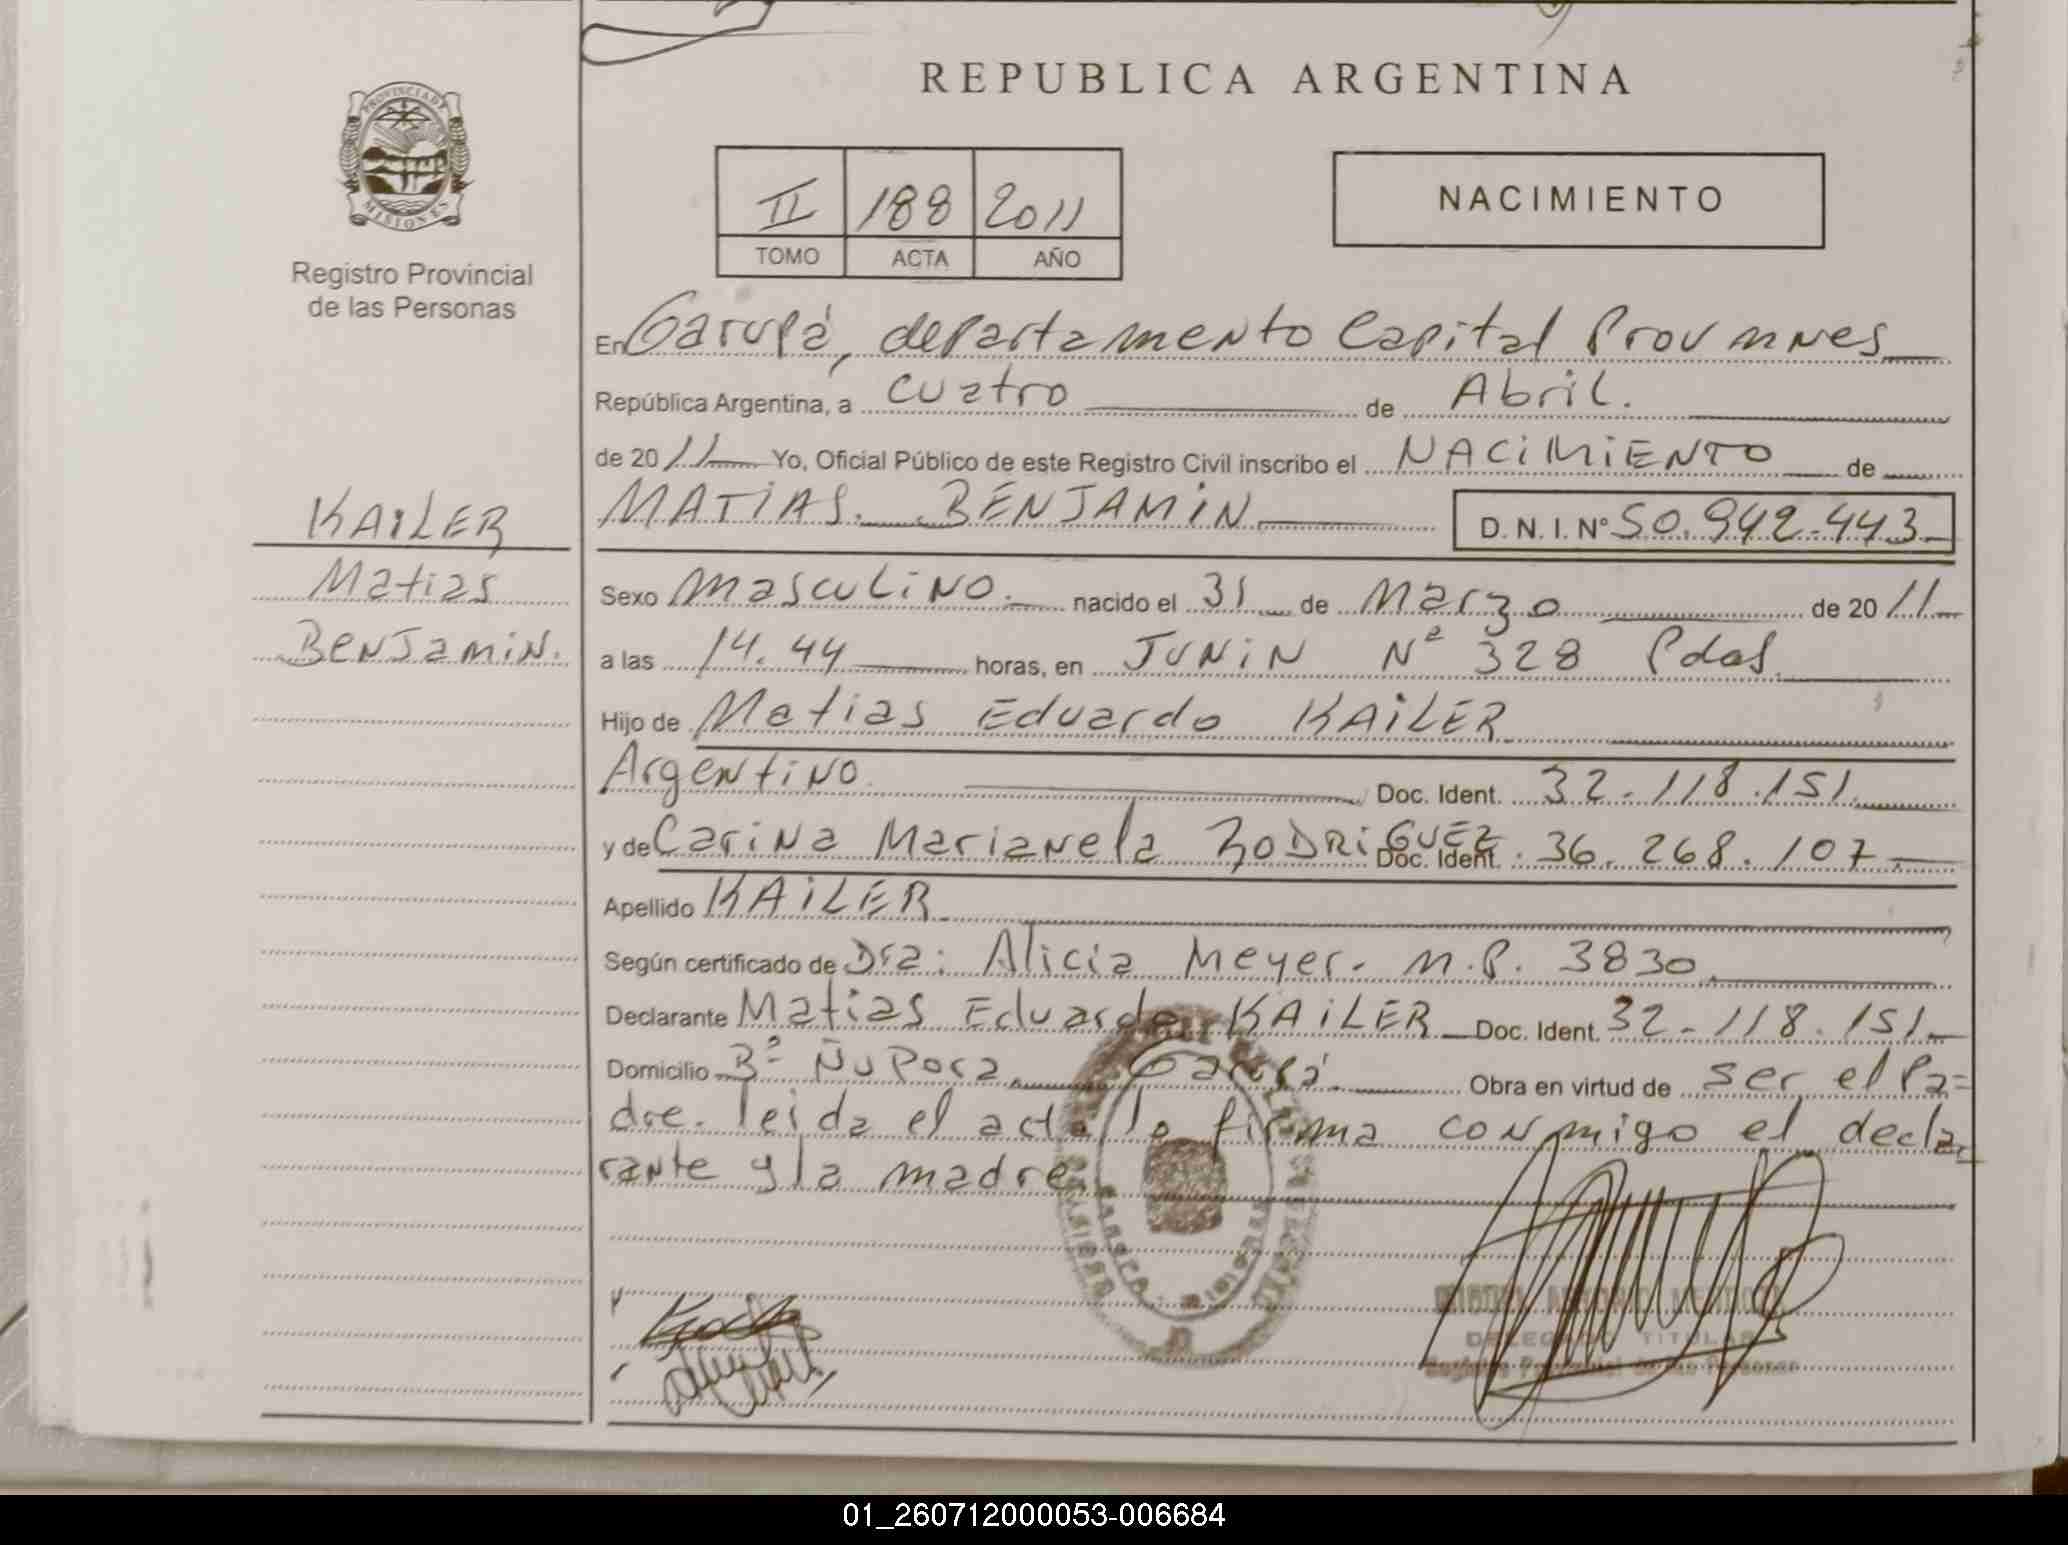 REPUBLICA ARGENTINA
PROVINCIA DE
MISIONES
Registro Provincial
de las Personas
II 188 2011
TOMO ACTA AÑO
NACIMIENTO
En Garupá, departamento Capital Prov mnes
República Argentina, a cuatro de Abril.
de 2011 Yo, Oficial Público de este Registro Civil inscribo el NACIMIENTO de
MATIAS BENJAMIN D. N. I. Nº 50.942.443
KAILER
Matias
Benjamin.
Sexo masculino. nacido el 31 de Marzo de 2011
a las 14.44 horas, en JUNIN Nº 328 Pdas.
Hijo de Matias Eduardo KAILER
Argentino. Doc. Ident. 32.118.151
y de Carina Marianela RODRIGUEZ Doc. Ident. 36.268.107
Apellido KAILER
Según certificado de Dra: Alicia Meyer. M.P. 3830
Declarante Matias Eduardo KAILER Doc. Ident. 32.118.151
Domicilio Bº Ñu Pora Garupá. Obra en virtud de ser el Pa=
dre. leida el acta la firma conmigo el decla
rante y la madre
GARUPA - MISIONES
DELEGADO TITULAR
Registro Provincial de las Personas
01_260712000053-006684